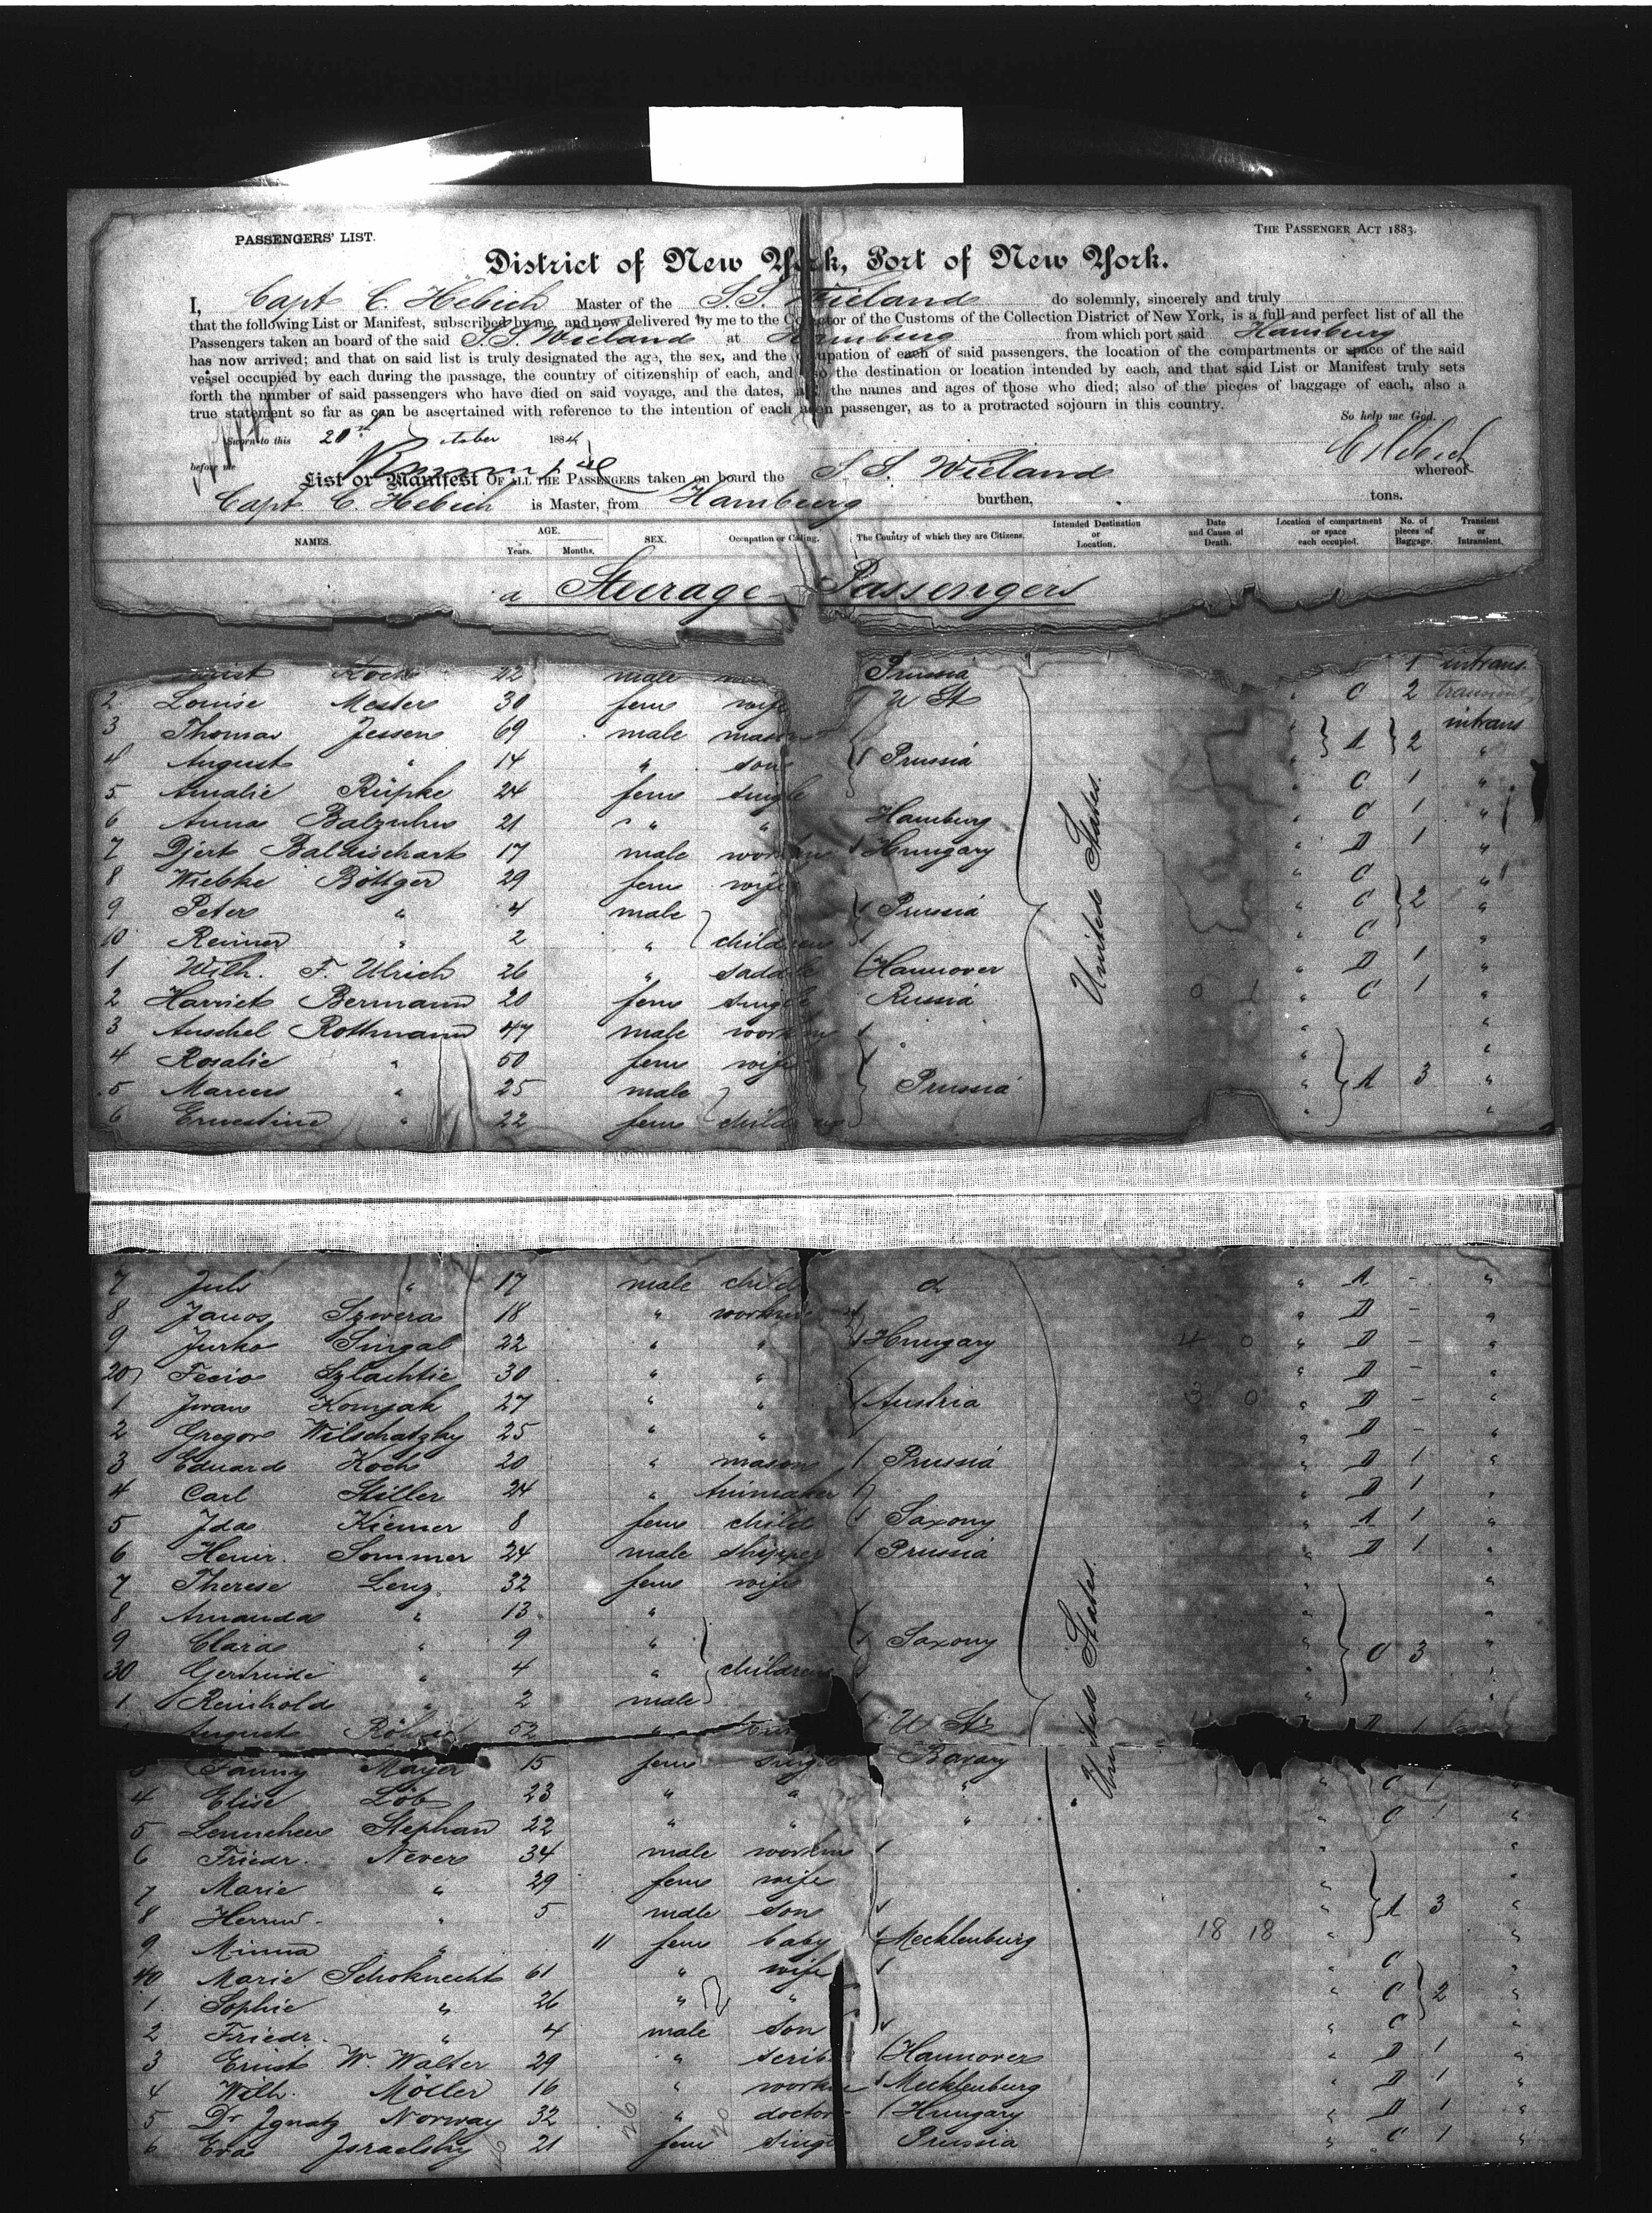 PASSENGERS' LIST.
THE PASSENGER ACT 1883.
District of New York, Port of New York.
I, Capt C. Hebich Master of the S.S. Wieland do solemnly, sincerely and truly
that the following List or Manifest, subscribed by me, and now delivered by me to the Collector of the Customs of the Collection District of New York, is a full and perfect list of all the
Passengers taken an board of the said S.S. Wieland at Hamburg from which port said Hamburg
has now arrived; and that on said list is truly designated the age, the sex, and the occupation of each of said passengers, the location of the compartments or space of the said
vessel occupied by each during the passage, the country of citizenship of each, and also the destination or location intended by each, and that said List or Manifest truly sets
forth the number of said passengers who have died on said voyage, and the dates, and the names and ages of those who died; also of the pieces of baggage of each, also a
true statement so far as can be ascertained with reference to the intention of each alien passenger, as to a protracted sojourn in this country.
So help me God.
Sworn to this 20th October 1884
before me C Hebich
List or Manifest OF ALL THE PASSENGERS taken on board the S.S. Wieland whereof
Capt C. Hebich is Master, from Hamburg burthen, tons.
NAMES. AGE. Years. Months. SEX. Occupation or Calling. The Country of which they are Citizens. Intended Destination or Location. Date and Cause of Death. Location of compartment or space each occupied. No. of pieces of Baggage. Transient or Intransient.
Steerage Passengers
Koch 22 male Prussia 1 intrans.
2 Louise Mesters 30 fem wife U St " C 2 transient
3 Thomas Jessen 69 male mason " A 2 intrans
4 August " 14 " son Prussia " "
5 Amalie Rüpke 24 fem single " C 1 "
6 Anna 21 " " Hamburg " C 1 "
7 17 male workm Hungary " D 1 "
8 Wiebke Böttger 29 fem wife " C "
9 Peter " 4 male Prussia " C 2 "
10 Reimer " 2 " children " C "
1 Wilh. F. Ulrich 26 " saddle Hannover " D 1 "
2 Harriet Bermann 20 fem single Russia 0 1 " C 1 "
3 Anschel Rothmann 47 male workm " "
4 Rosalie " 50 fem wife " "
5 Marcus " 25 male Prussia " A 3 "
6 Ernestine " 22 fem children " "
United States.
7 Juls " 17 male child d " A - "
8 Janos Szwera 18 " workm " D - "
9 Jurko Singal 22 " " Hungary 4 0 " D - "
20 Fecio Szlachtic 30 " " " D - "
1 Iwan Komjak 27 " " Austria 3 0 " D - "
2 Gregor Wilschatzky 25 " " " D - "
3 Eduard Koch 20 " mason Prussia " D 1 "
4 Carl Stiller 24 " " D 1 "
5 Ida Kiemer 8 fem child Saxony " A 1 "
6 Heinr. Sommer 24 male shipper Prussia " D 1 "
7 Therese Lenz 32 fem wife " "
8 Amanda " 13 " " "
9 Clara " 9 " Saxony " C 3 "
30 Gertrude " 4 " children " "
1 Reinhold " 2 male " "
August 52 " U St D 1
United States.
3 Fanny Mayer 15 fem single Bavary
4 Elise Löb 23 " " " " C 1 "
5 Stephan 22 " " " " C 1 "
6 Friedr. Nevers 34 male workm " "
7 Marie " 29 fem wife " "
8 Herm. " 5 male son " A 3 "
9 Minna " 11 fem baby Mecklenburg 18 18 " "
40 Marie Schoknecht 61 " wife " C "
1 Sophie " 26 " " " C 2 "
2 Friedr. " 4 male son " C "
3 Ernst W. Walter 29 " scribe Hannover " D 1 "
4 Wilh. Möller 16 " workm Mecklenburg " D 1 "
5 Dr Ignatz Norway 32 " doctor Hungary " D 1 "
6 Eva Israelsky 21 fem single Prussia " C 1 "